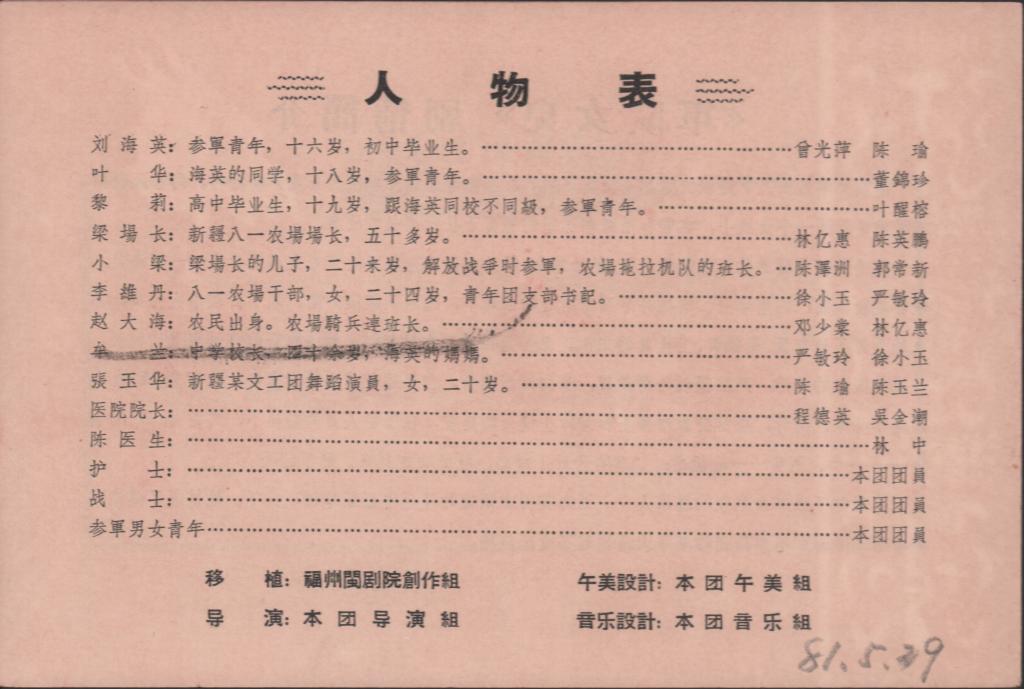 人物表
刘海英：参軍青年，十六岁，初中毕业生。……曾光萍 陈瑜
叶华：海英的同学，十八岁，参軍青年。……董錦珍
黎莉：高中毕业生，十九岁，跟海英同校不同級，参軍青年。……叶醒榕
梁場长：新疆八一农場場长，五十多岁。……林亿惠 陈英鵬
小梁：梁場长的儿子，二十来岁，解放战爭时参軍，农場拖拉机队的班长。…陈澤洲 郭常新
李雄丹：八一农場干部，女，二十四岁，青年团支部书記。……徐小玉 严敏玲
赵大海：农民出身。农場騎兵連班长。……邓少棠 林亿惠
牟兰：中学校长，四十余岁，海英的媽媽。……严敏玲 徐小玉
張玉华：新疆某文工团舞蹈演員，女，二十岁。……陈瑜 陈玉兰
医院院长：……程德英 吳金潮
陈医生：……林中
护士：……本团团員
战士：……本团团員
参軍男女青年……本团团員
移植：福州閩剧院創作組 午美設計：本团午美組
导演：本团导演組 音乐設計：本团音乐組
81.5.29